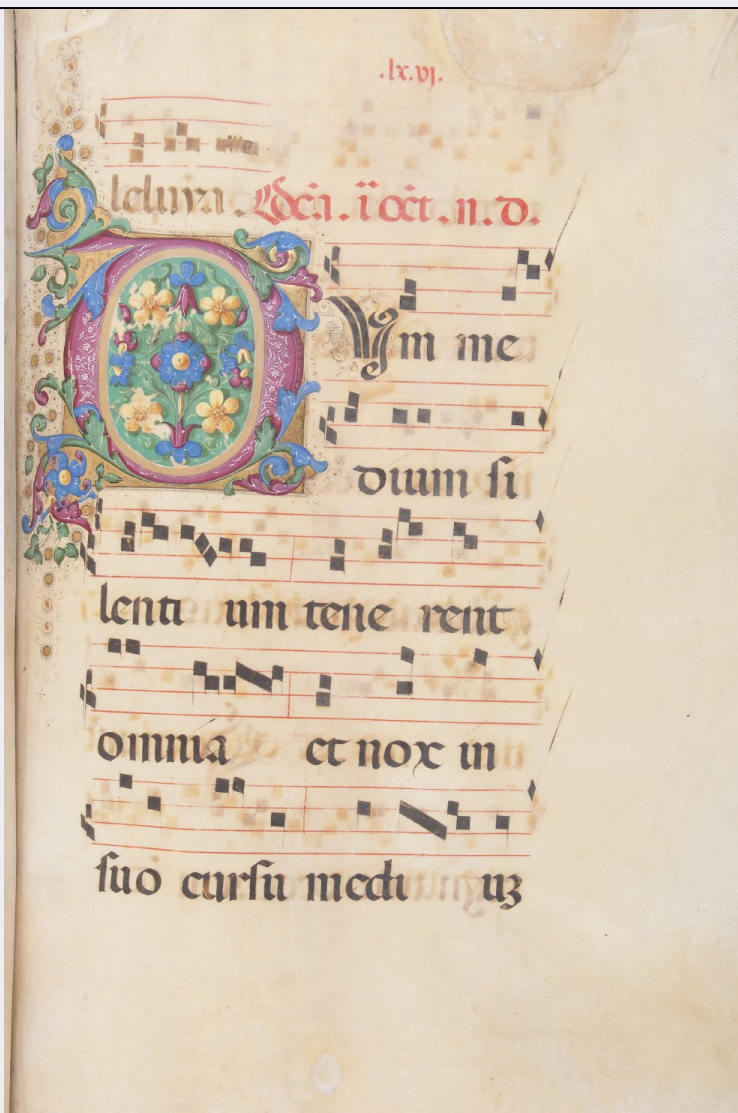 .lx.vj.
leluya. Dc̄a. ī oct. n. D.
DVm me
dium si
lenti um tene rent
omnia et nox in
suo cursu medi uʒ